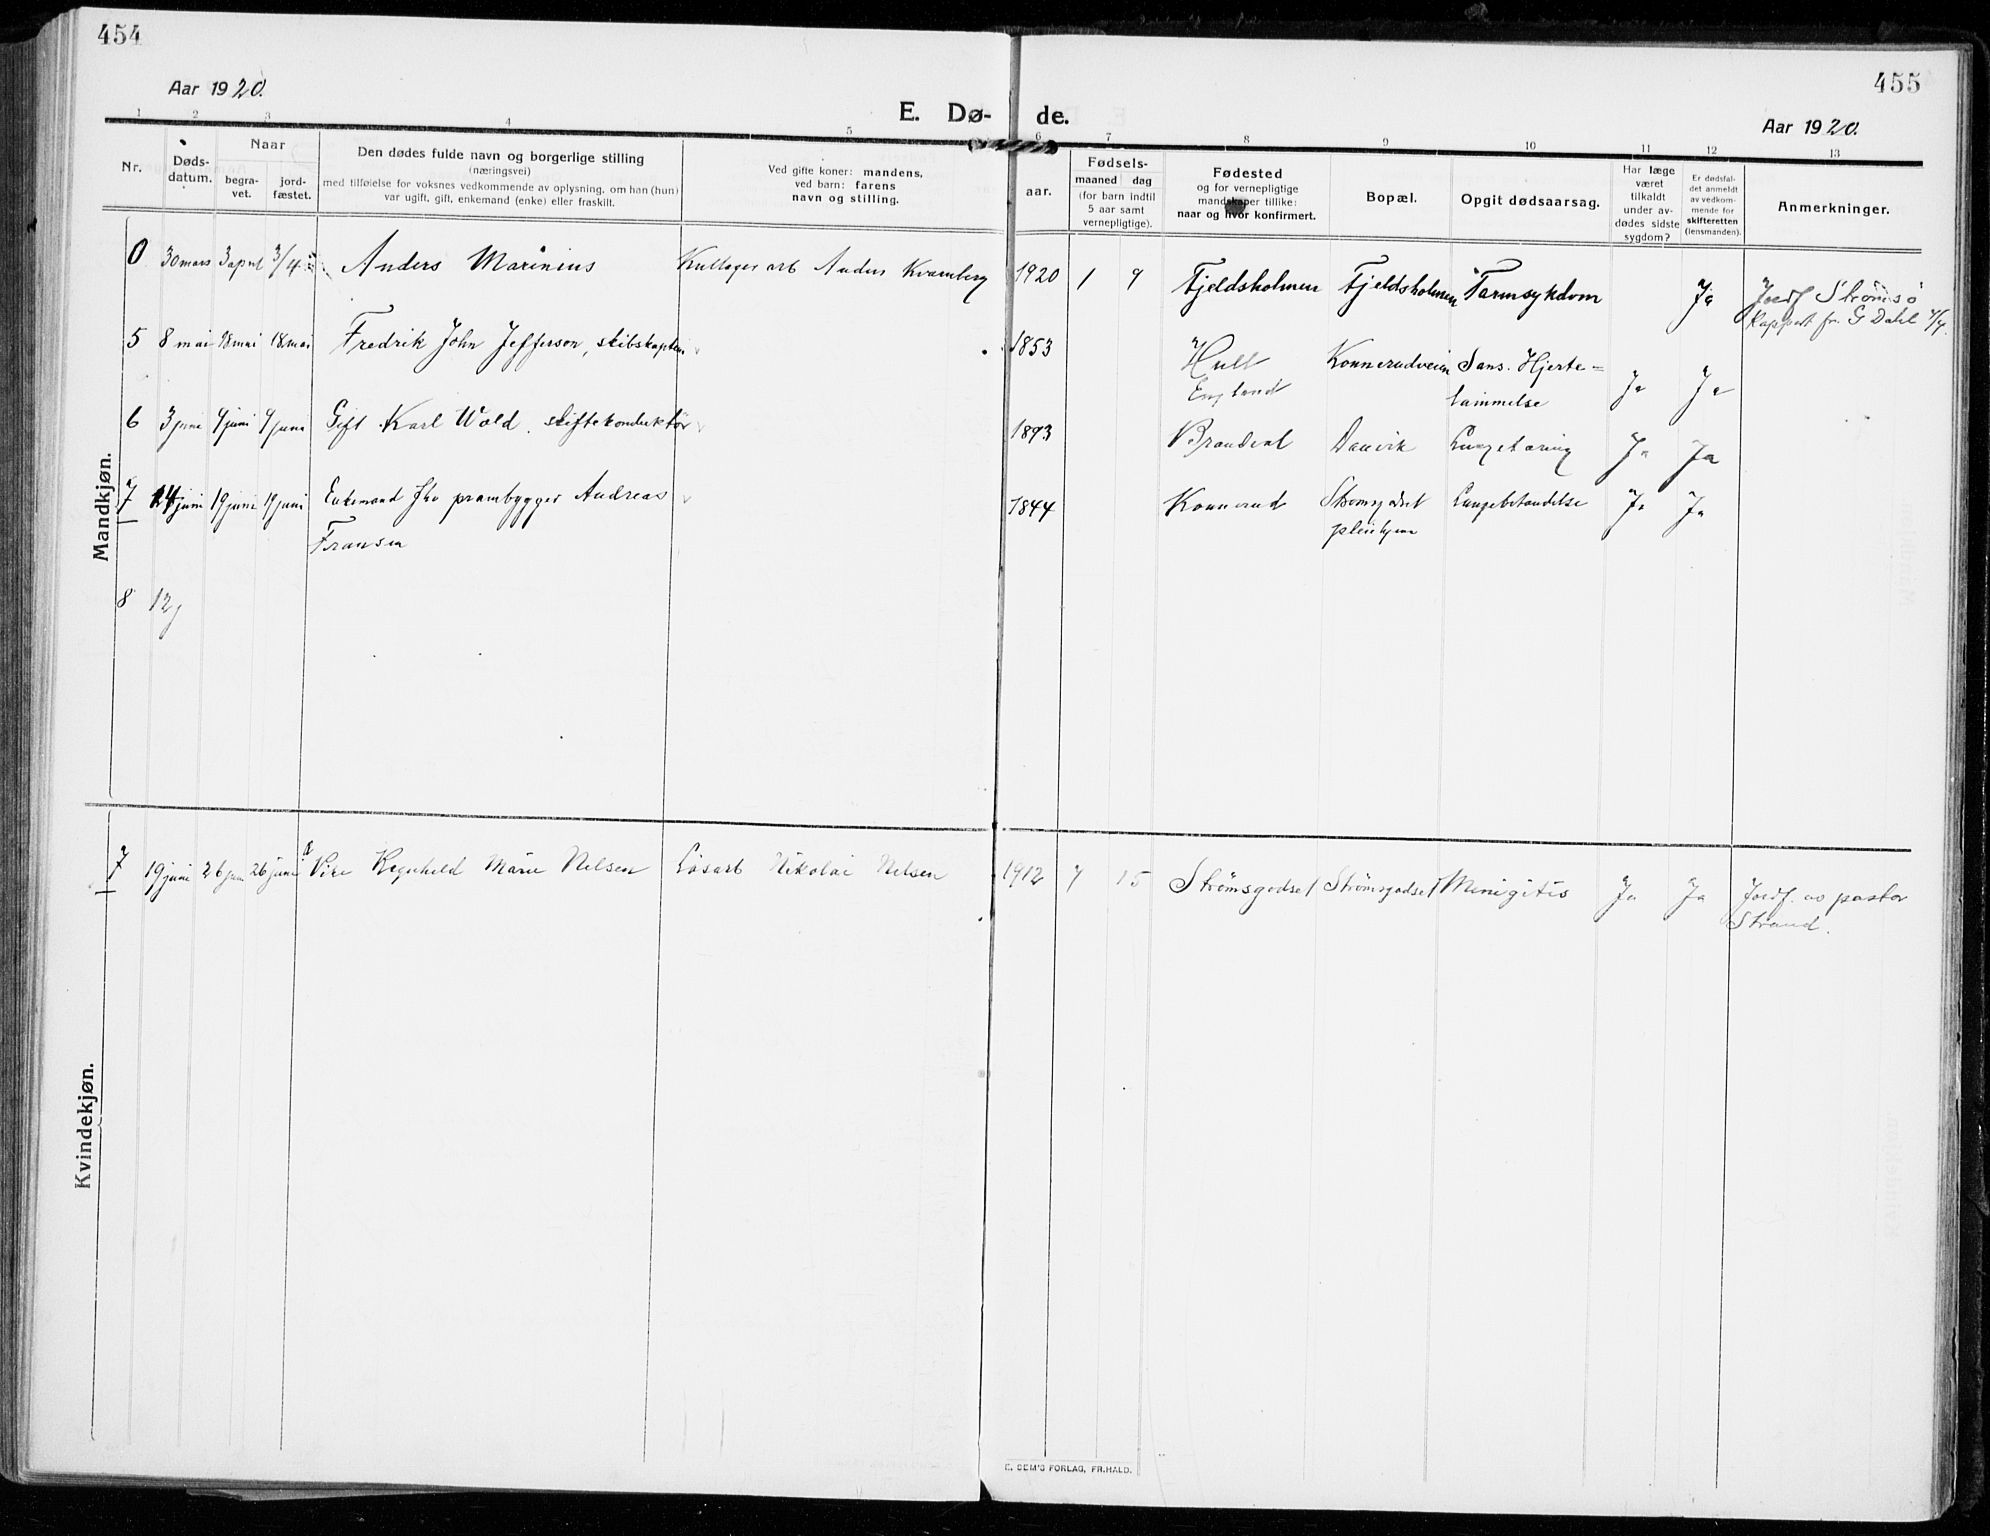 454
Aar 1920.
E. Dø-
1 2 3 4 5
Nr.
Døds-
datum.
Naar
begra-
vet.
jord-
fæstet.
Den dødes fulde navn og borgerlige stilling
(næringsvei)
med tilføielse for voksnes vedkommende av oplysning, om han (hun)
var ugift, gift, enkemand (enke) eller fraskilt.
Ved gifte koner: mandens,
ved barn: farens
navn og stilling.
Mandkjøn.
0 30 mars 3 april 3/4 Anders Marinius Anders Kvamberg
5 8 mai 18 mai 18 mai Fredrik John Jefferson, skibskaptein
6 3 juni 9 juni 9 juni Gift Karl Wold.
7 14 juni 19 juni 19 juni Enkemand fhv prambygger Andreas
Fransen
8 12 j
Kvindekjøn.
7 19 juni 26 juni 26 juni Ragnhild Marie Nilsen Løsarb Nikolai Nilsen
455
Aar 1920.
de.
6 7 8 9 10 11 12 13
aar.
Fødsels-
maaned dag
(for barn indtil
5 aar samt
vernepligtige).
Fødested
og for vernepligtige
mandskaper tillike:
naar og hvor konfirmert.
Bopæl.
Opgit dødsaarsag.
Har læge
været
tilkaldt
under av-
dødes sidste
sygdom?
Er dødsfal-
det anmeldt
av vedkom-
mende for
skifteretten
(lensmanden).
Anmerkninger.
1920 1 9 Fjeldsholmen Fjeldsholmen Tarmsykdom Ja Jordf Strømsø
Rapport fr. G Dahl
1853 Hull Konnerudveien Sans. Hjerte=
England lammelse Ja Ja
1893 Danvik Lungetæring Ja Ja
1844 Konnerud Strømsgodset Lungebetændelse Ja Ja
pleiehjem
1912 7 15 Strømsgodset Strømsgodset Minigitis Ja Ja Jordf. av pastor
Strand.
E. SEM'S FORLAG, FR.HALD.